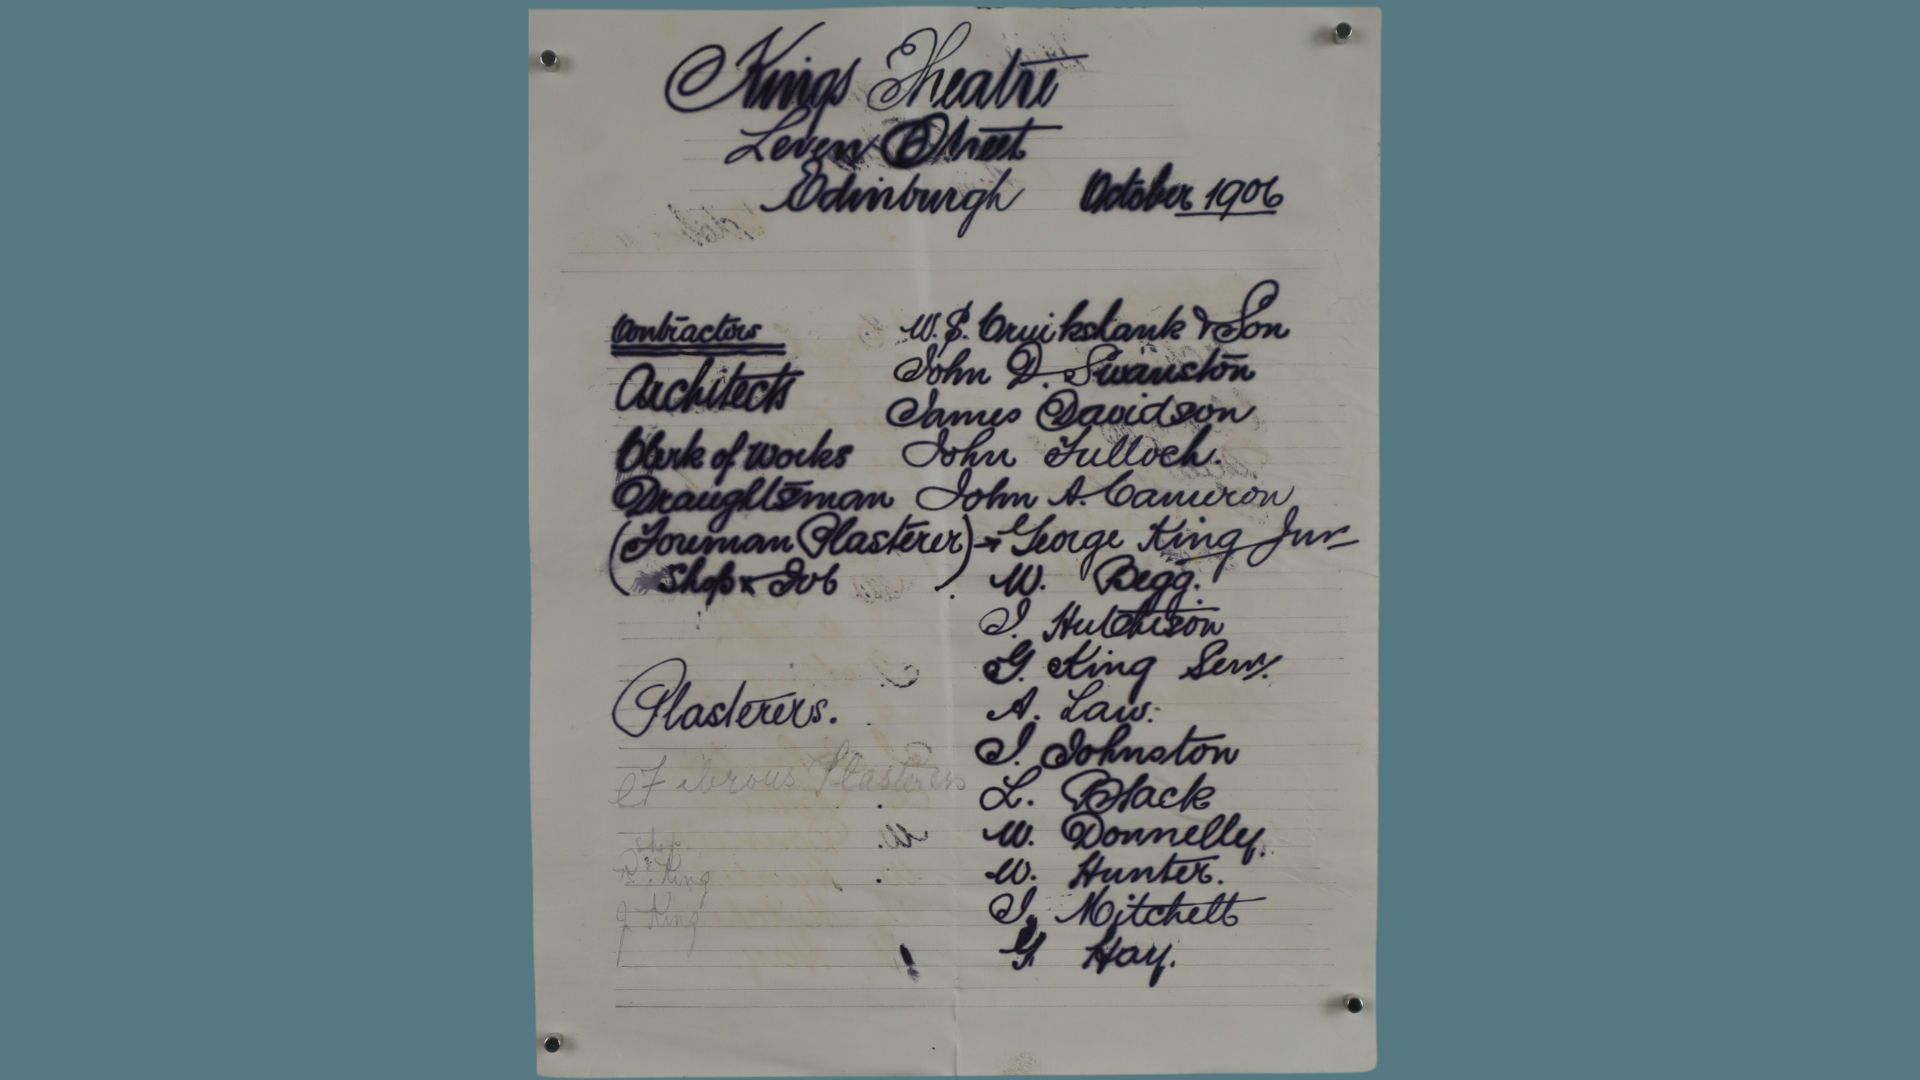 Kings Theatre
Leven Street
Edinburgh October 1906
Contractors W. S. Cruikshank & Son
Architects John D. Swanston
James Davidson
Clerk of Works John Tulloch.
Draughtsman John A. Cameron
(Foreman Plasterer) → George King Junr
( Shop & Job ) W. Begg.
J. Hutchison
G. King Senr.
Plasterers. A. Law.
J. Johnston
Fibrous Plasterers L. Black
Shop W. Donnelly.
King W. Hunter.
J King J. Mitchell
G. Hay.